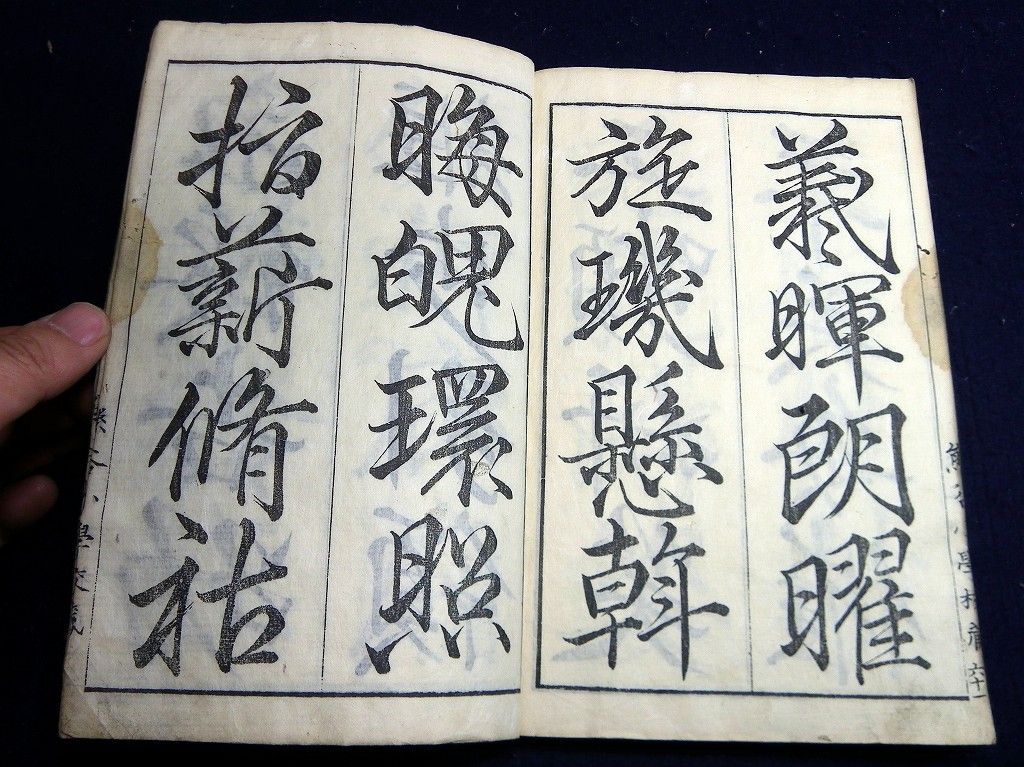 羲暉朗曜
旋璣懸斡
晦魄環照
指薪脩祜